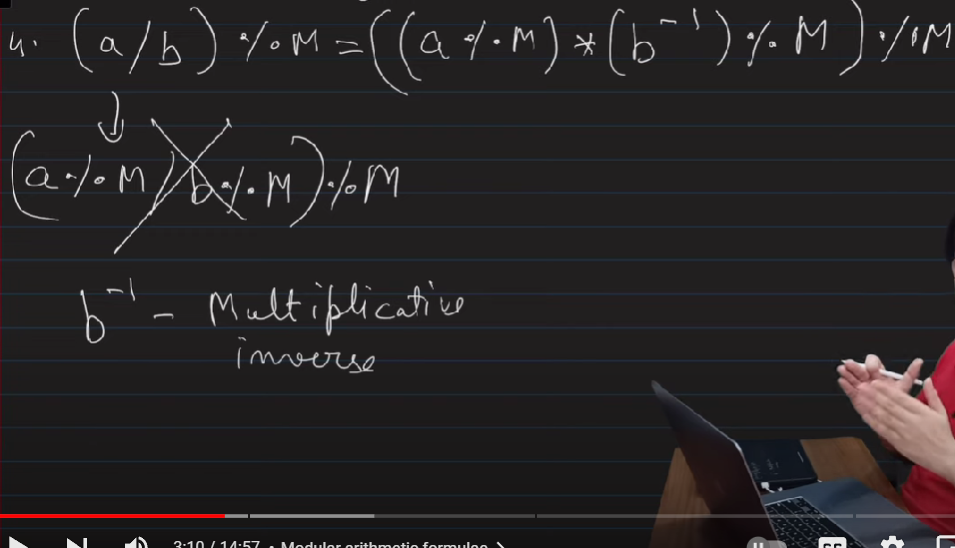 4. (a/b) % M = ((a % M) * (b⁻¹) % M) % M
↓
(a % M / b % M) % M
b⁻¹ - Multiplicative
inverse
3:10 / 14:57 • Modular arithmetic formulas >
CC